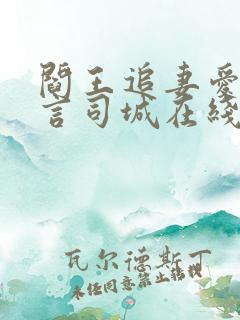 閻王追妻愛
言司城在綫
瓦尔德斯丁
未经同意禁止转税